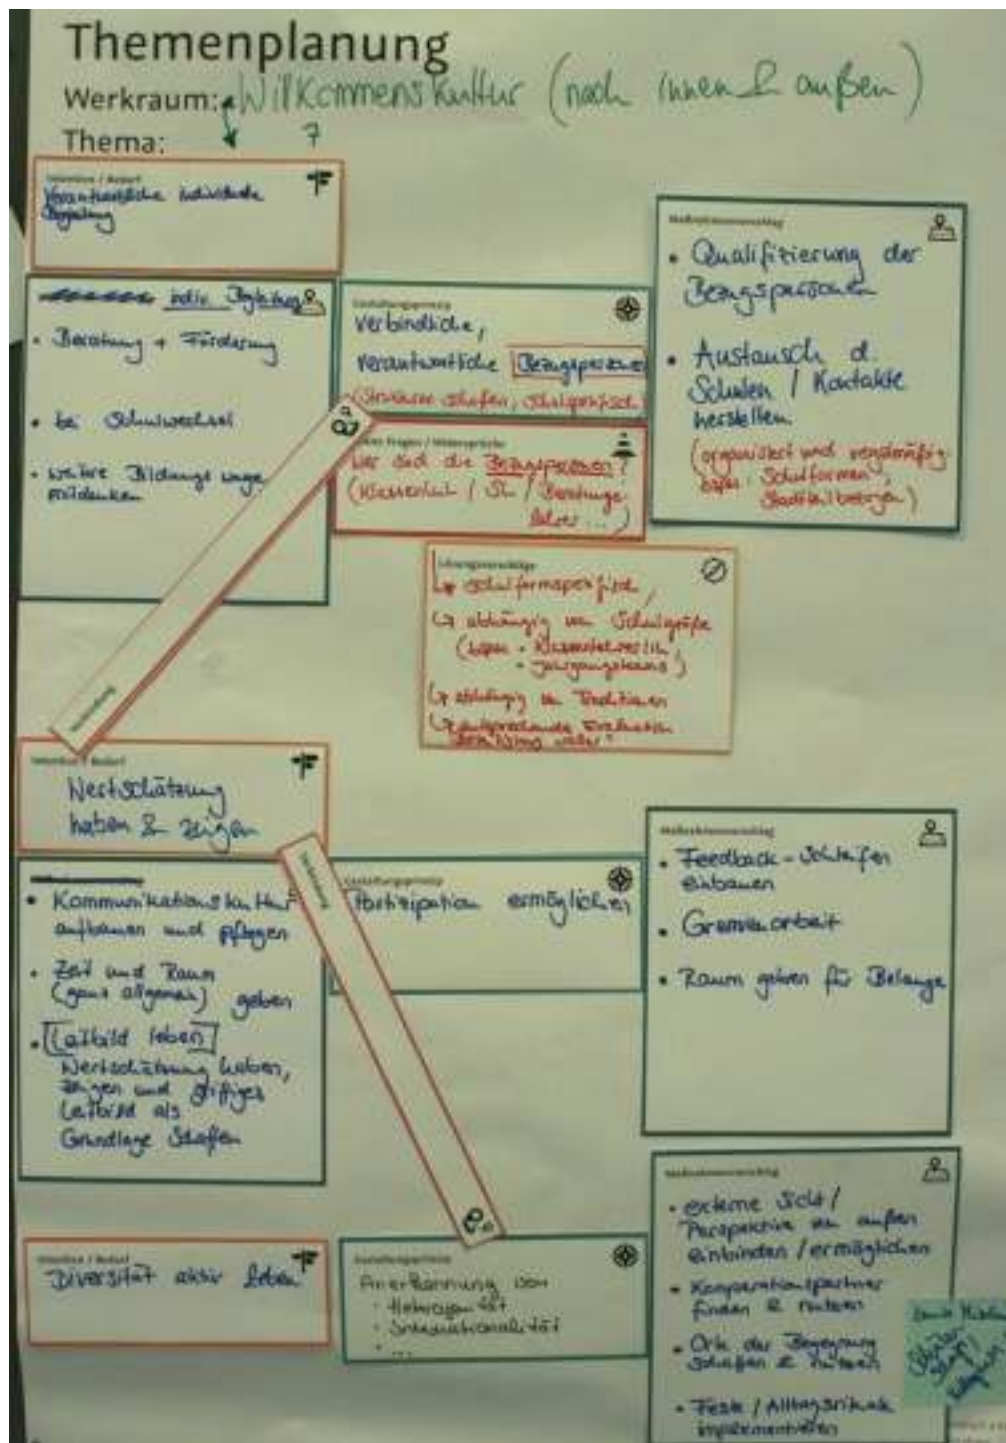 Themenplanung
Werkraum: Willkommenskultur (nach innen & außen)
Thema: 7
Intention / Bedarf
Verantwortliche individuelle
Begleitung
indiv. Begleitung
• Beratung + Förderung
• bei Schulwechsel
• weitere Bildungswege
mitdenken
Gestaltungsprinzip
Verbindliche,
verantwortliche Bezugspersonen
(Strukturen schaffen, schulspezifisch)
Fragen / Widersprüche
Wer sind die Bezugspersonen?
(Klassenlehr / SL / Beratungs
lehrer ...)
Maßnahmenvorschlag
• Qualifizierung der
Bezugspersonen
• Austausch d.
Schulen / Kontakte
herstellen
(organisiert und regelmäßig
bspw. Schulformen,
Stadtteilbezogen)
Lösungsvorschläge
↳ schulformspezifisch,
↳ abhängig von Schulgröße
(bspw. • Klassenlehrer/in,
• Jahrgangsteams)
↳ abhängig von Traditionen
↳ entsprechende Evaluation
Verbindung
Intention / Bedarf
Wertschätzung
haben & zeigen
• Kommunikationskultur
aufbauen und pflegen
• Zeit und Raum
(ganz allgemein) geben
• [Leitbild leben]
Wertschätzung haben,
zeigen und griffiges
Leitbild als
Grundlage schaffen
Verbindung
Gestaltungsprinzip
Partizipation ermöglichen
Maßnahmenvorschlag
• Feedback-Schleifen
einbauen
• Gremienarbeit
• Raum geben für Belange
Intention / Bedarf
Diversität aktiv leben
Gestaltungsprinzip
Anerkennung von
• Heterogenität
• Internationalität
• ...
Maßnahmenvorschlag
• externe Sicht /
Perspektive von außen
einbinden / ermöglichen
• Kooperationspartner
finden & nutzen
• Orte der Begegnung
schaffen & nutzen
• Feste / Alltagsrituale
implementieren